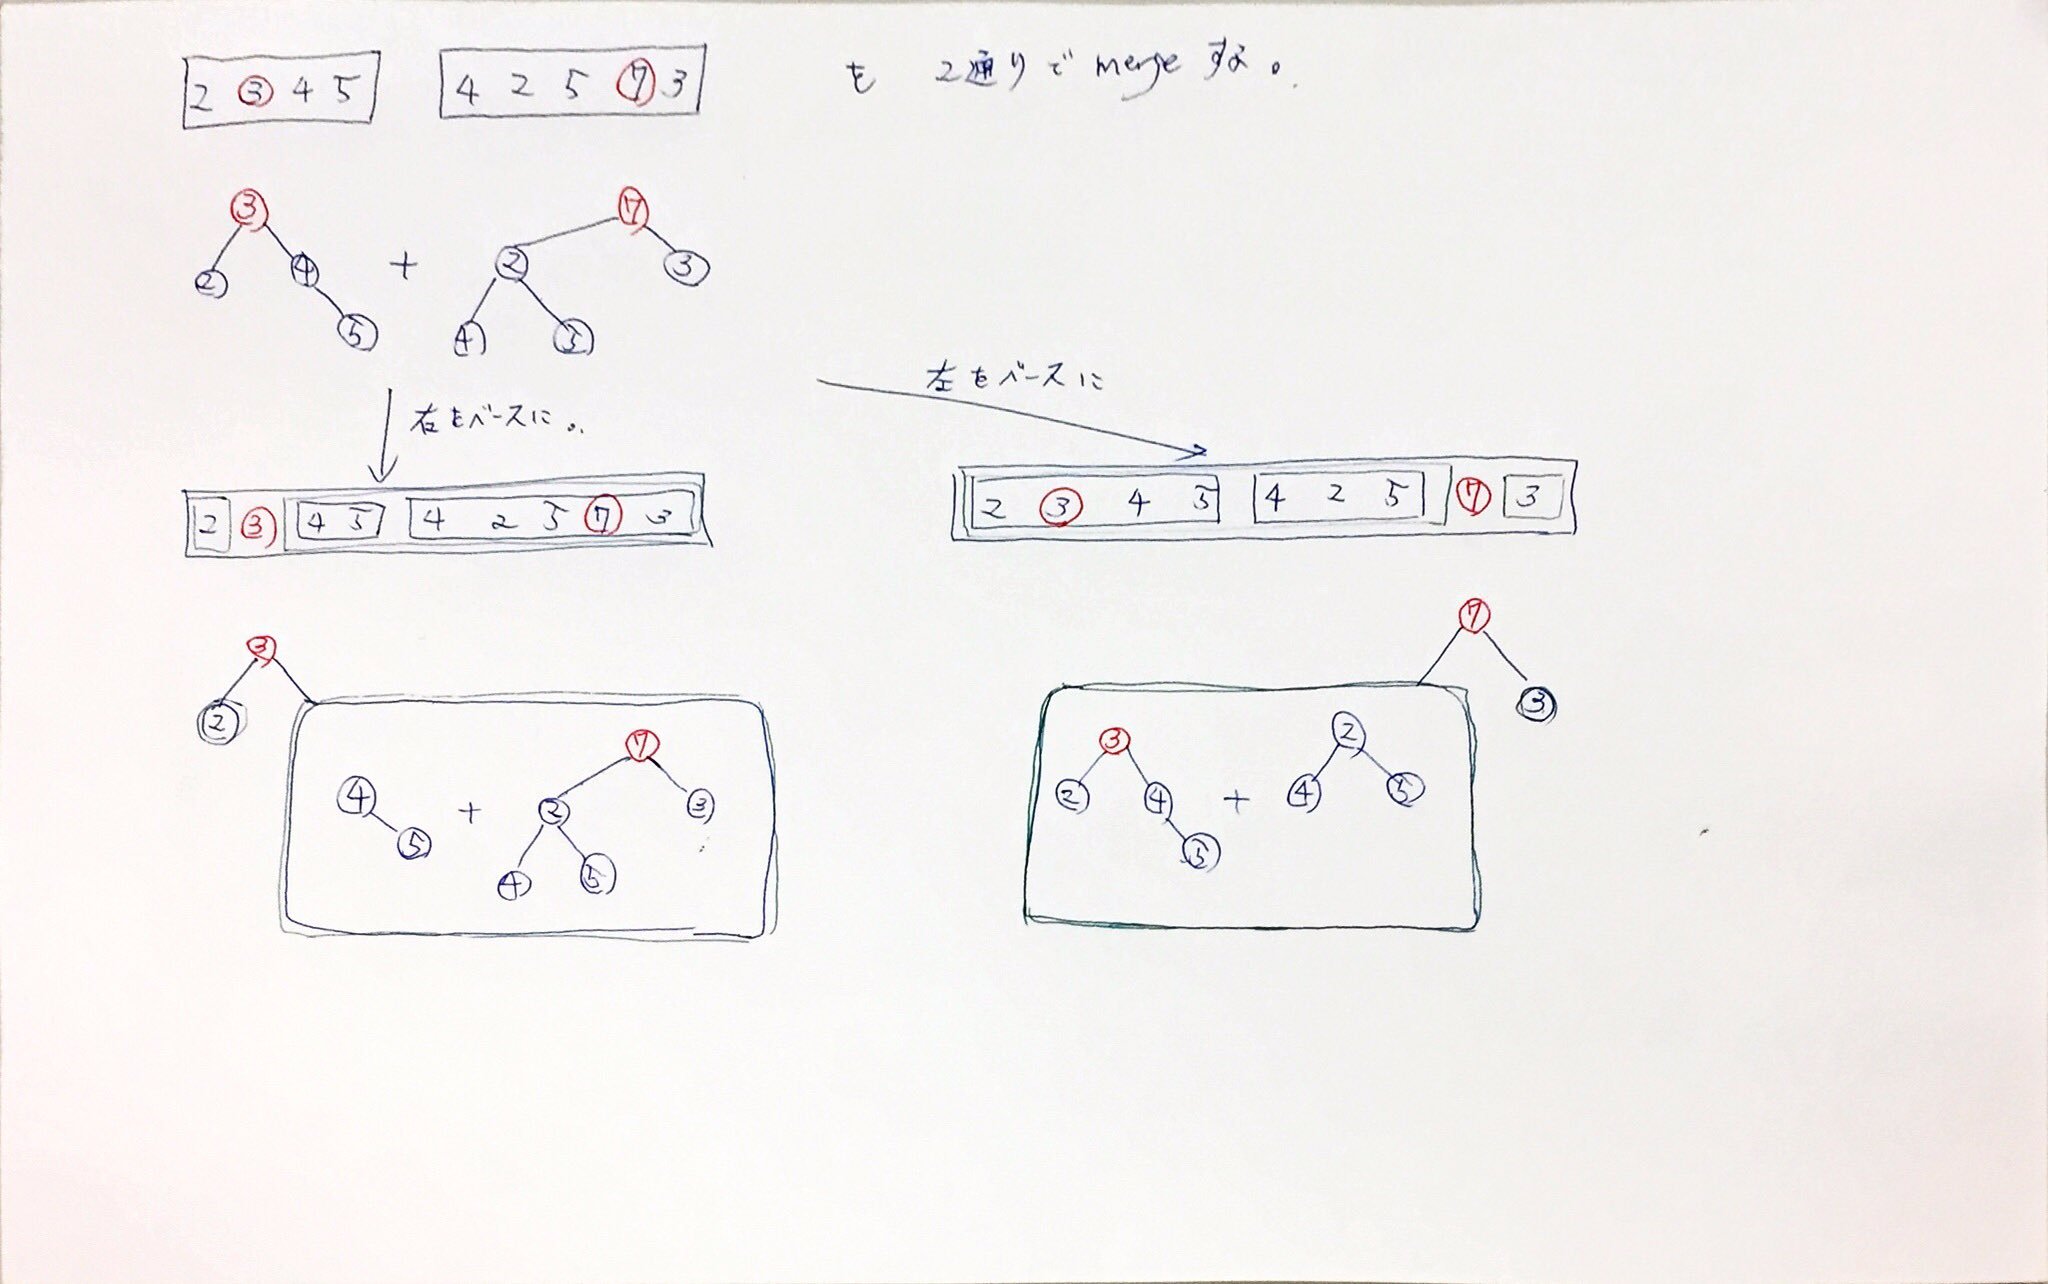 2 3 4 5 4 2 5 7 3 を 2通りでmergeする。
3 7
2 4 + 2 3
5 4 5
左をベースに
右をベースに。
2 3 4 5 4 2 5 7 3 2 3 4 5 4 2 5 7 3
3 7
2 3
7 3 2
4 + 2 3 2 4 + 4 5
5 4 5 5